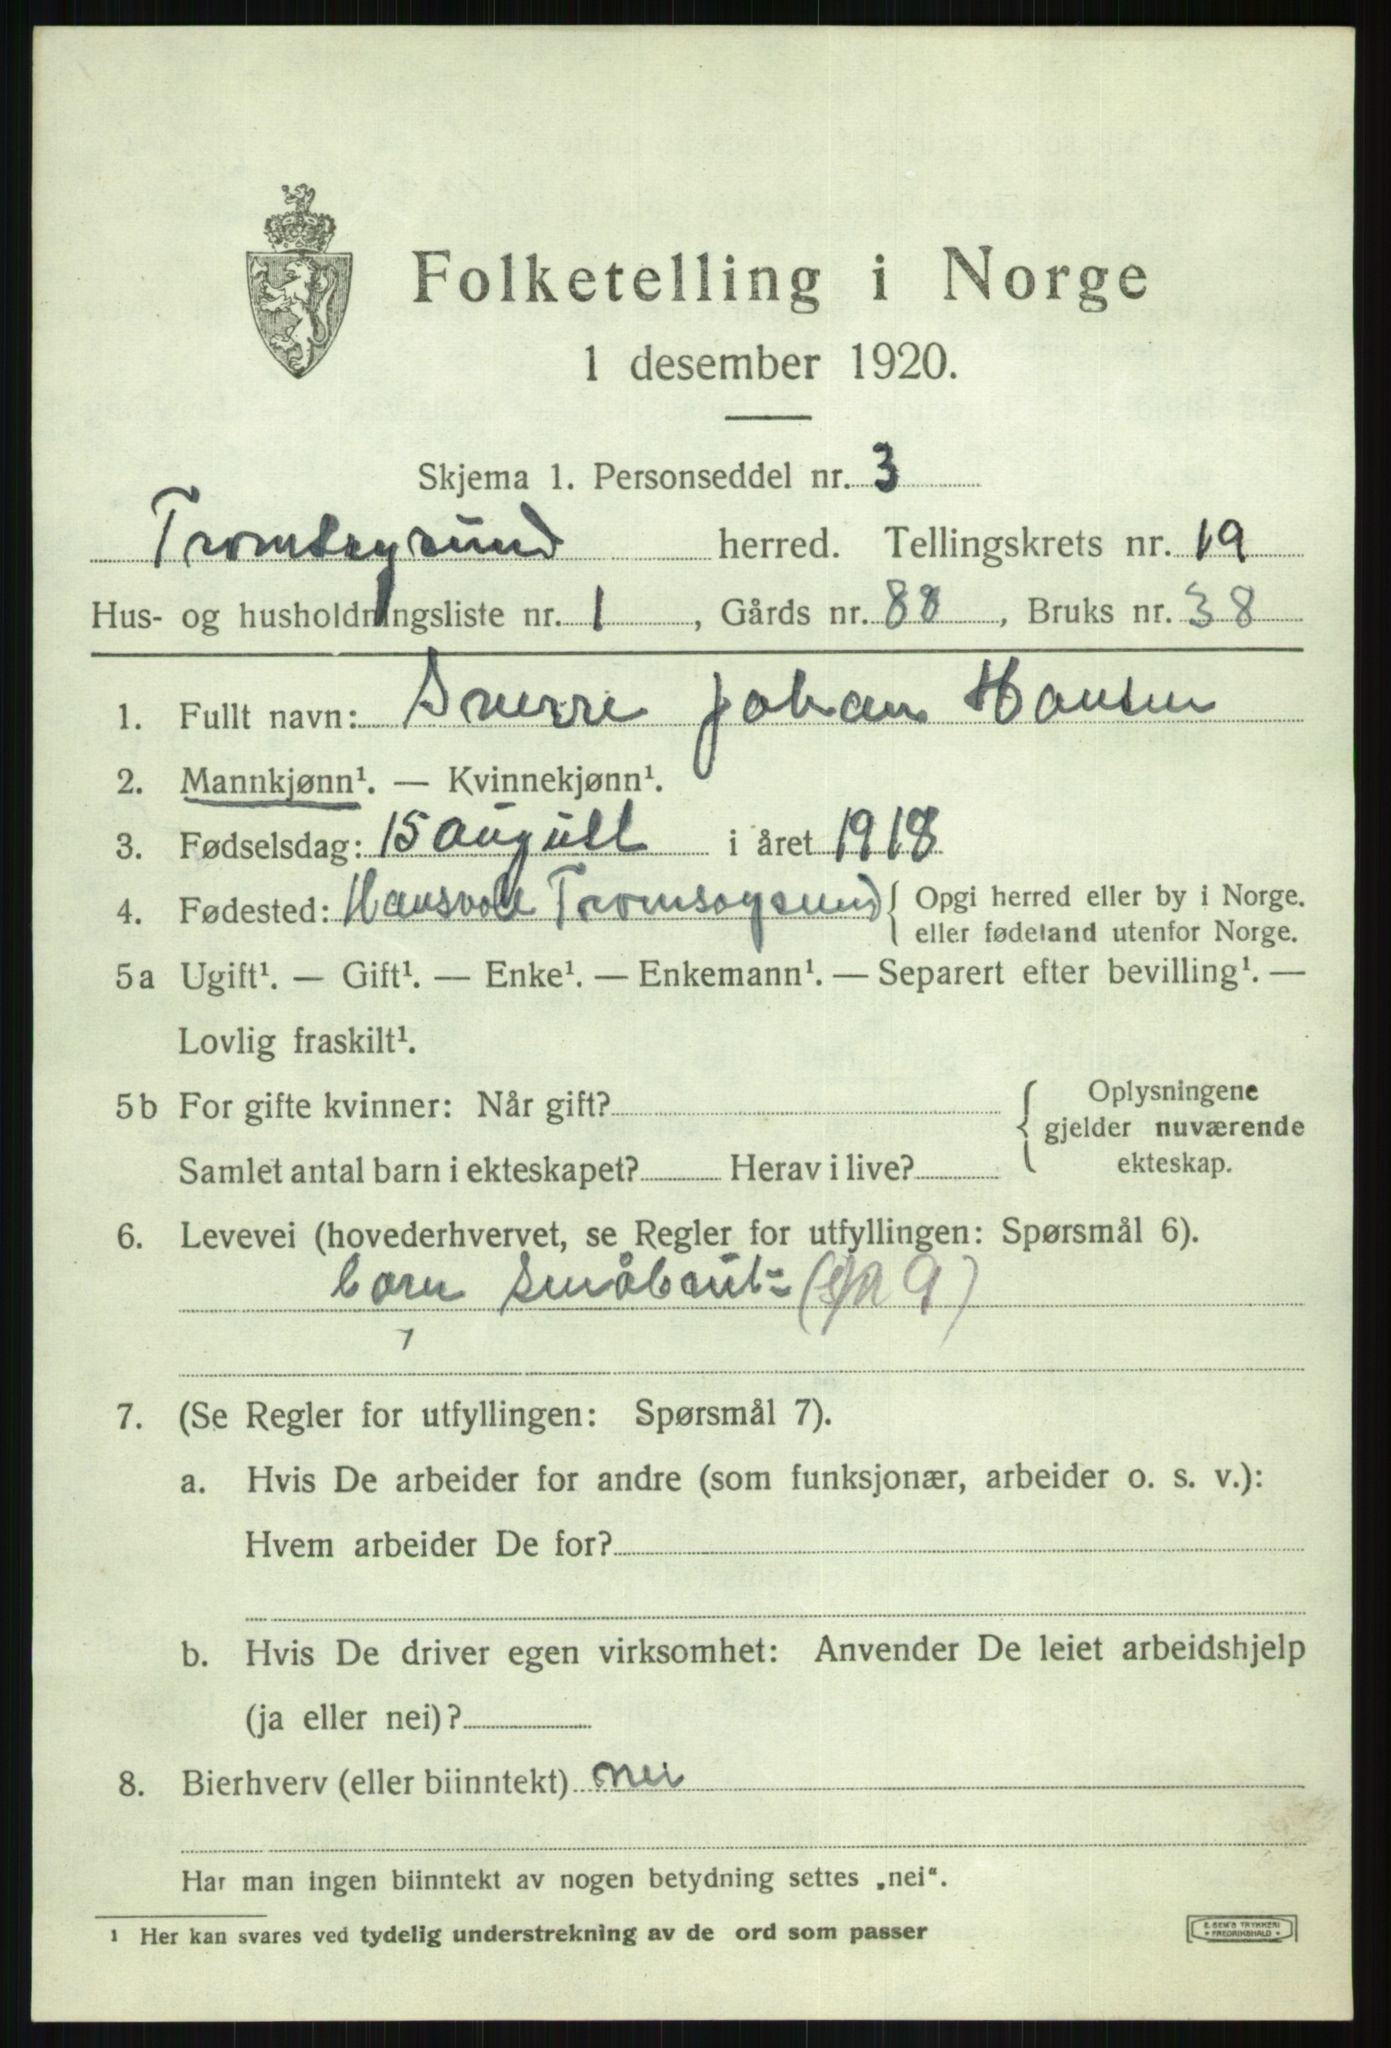 Folketelling i Norge
1 desember 1920.
Skjema 1. Personseddel nr. 3
Tromsøysund herred. Tellingskrets nr. 19
Hus- og husholdningsliste nr. 1, Gårds nr. 88, Bruks nr. 38
1. Fullt navn: Sverre Johan Hansen
2. Mannkjønn¹. — Kvinnekjønn¹.
3. Fødselsdag: 15 august i året 1918
4. Fødested: Tromsøysund { Opgi herred eller by i Norge.
eller fødeland utenfor Norge.
5a Ugift¹. — Gift¹. — Enke¹. — Enkemann¹. — Separert efter bevilling¹. —
Lovlig fraskilt¹.
5b For gifte kvinner: Når gift? { Oplysningene
gjelder nuværende
Samlet antal barn i ekteskapet? Herav i live? ekteskap.
6. Levevei (hovederhvervet, se Regler for utfyllingen: Spørsmål 6).
barn Småbruk
7. (Se Regler for utfyllingen: Spørsmål 7).
a. Hvis De arbeider for andre (som funksjonær, arbeider o. s. v.):
Hvem arbeider De for?
b. Hvis De driver egen virksomhet: Anvender De leiet arbeidshjelp
(ja eller nei)?
8. Bierhverv (eller biinntekt) nei
Har man ingen biinntekt av nogen betydning settes „nei“.
¹ Her kan svares ved tydelig understrekning av de ord som passer
E. SEM'S TRYKKERI
FREDRIKSHALD